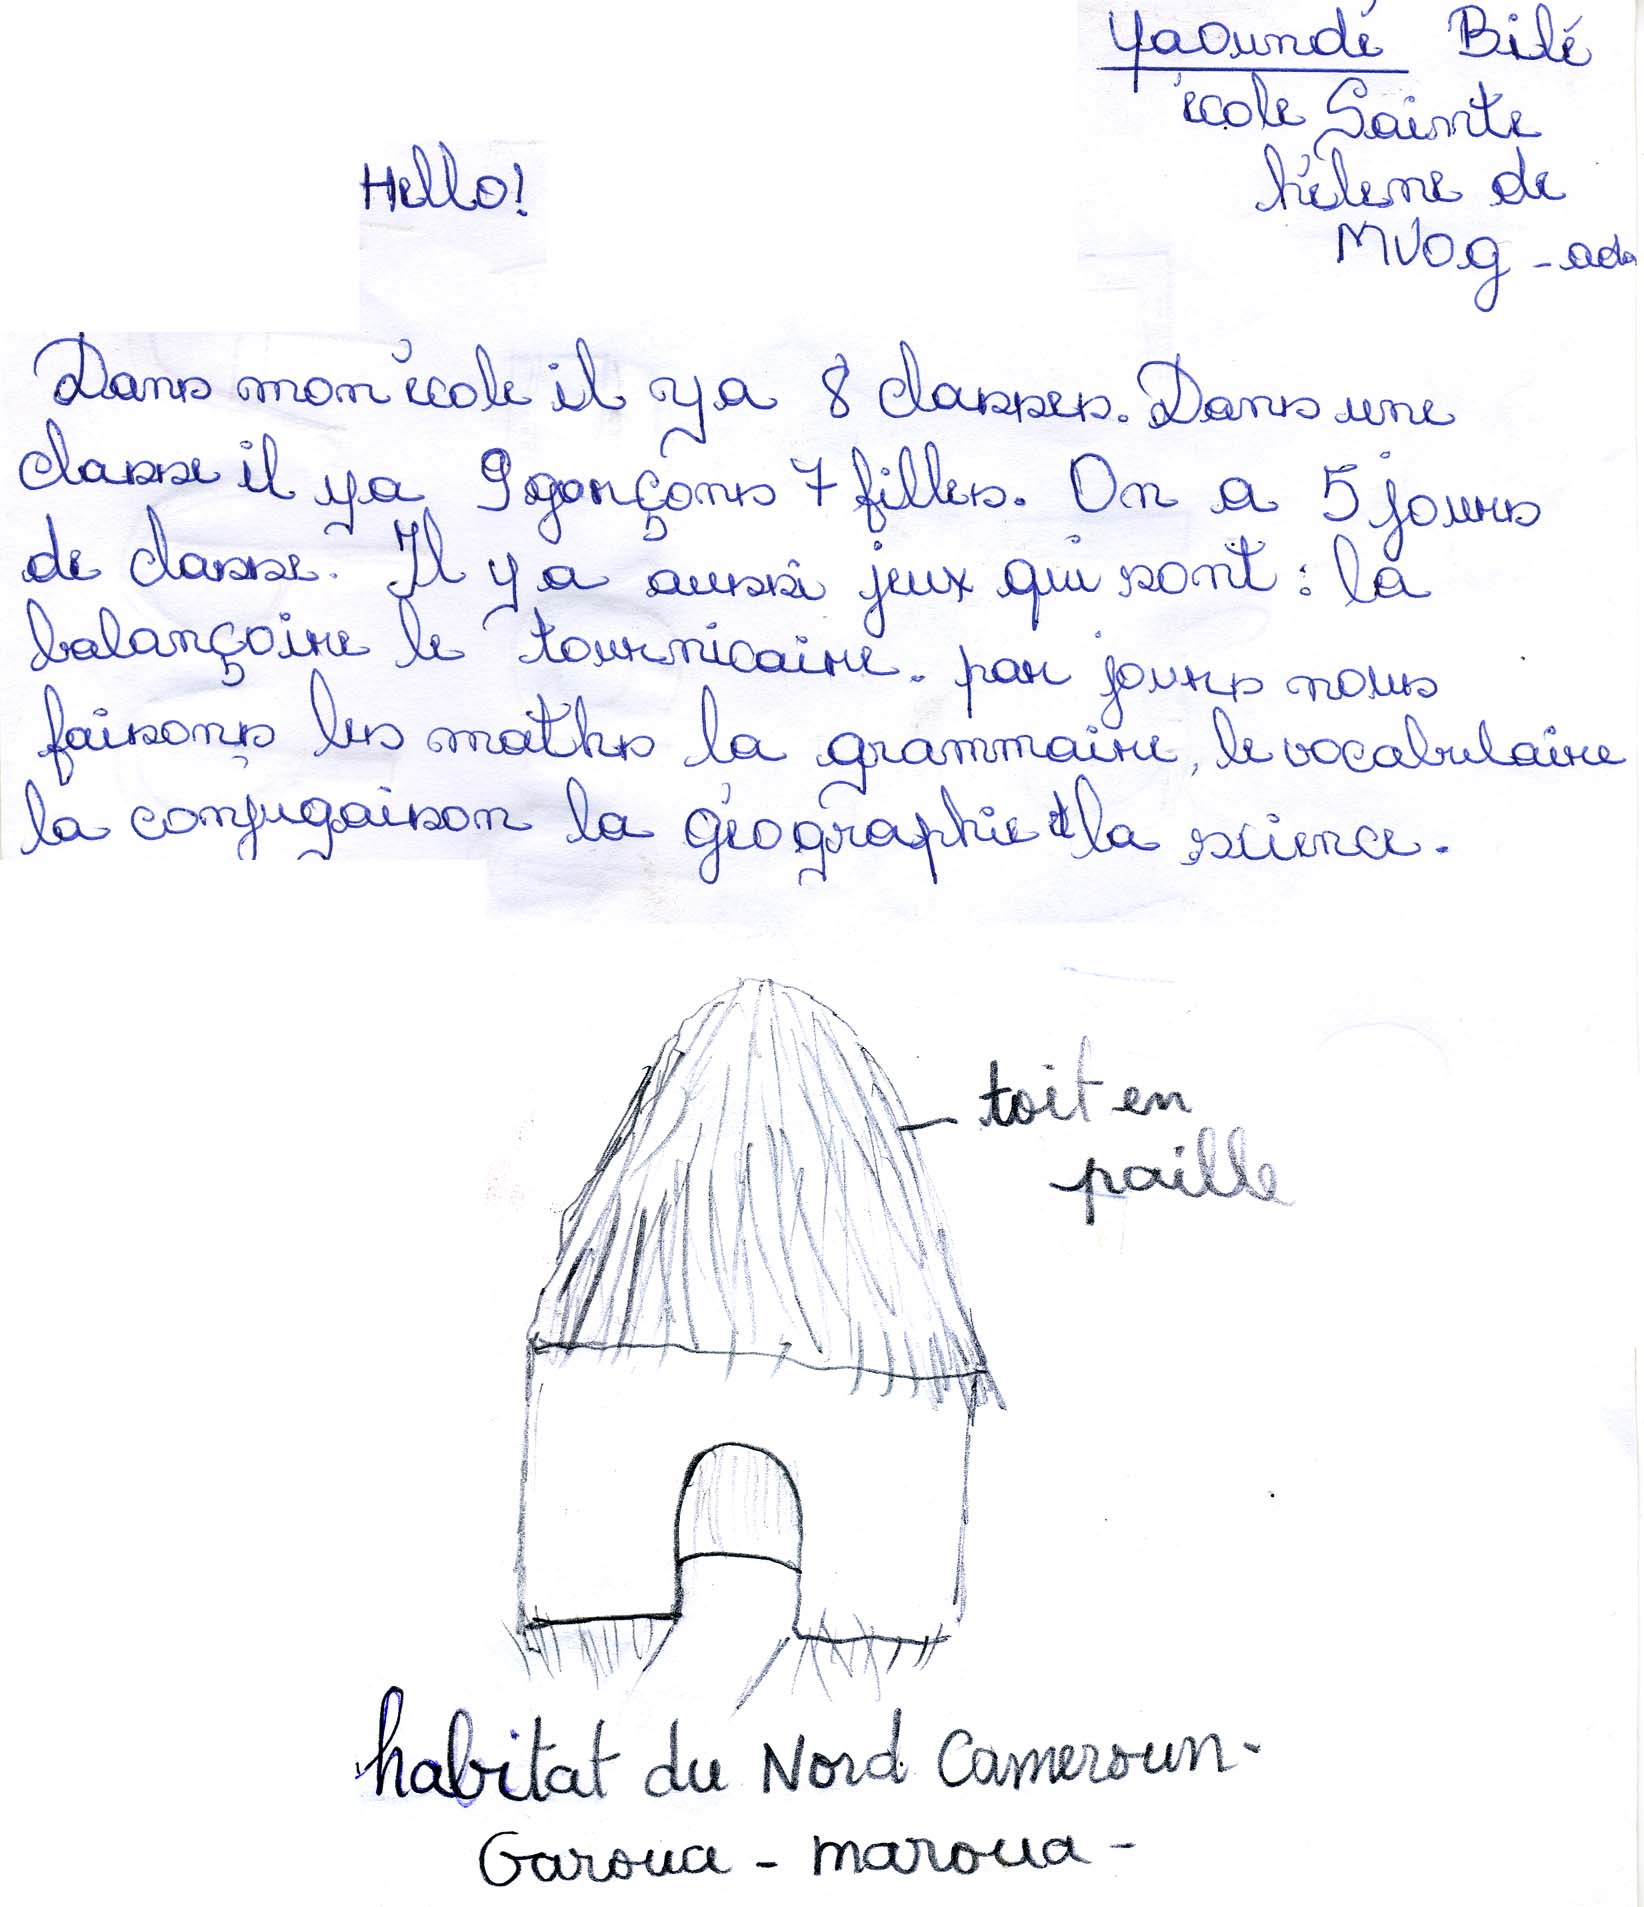 Yaoundé Bilé
école Sainte
hélene de
MVOg - ada
Hello!
Dans mon école il ya 8 classes. Dans une
classe il ya 9 garçons 7 filles. On a 5 jours
de classe. Il ya aussi jeux qui sont : la
balançoire le tournicaire. par jours nous
faisons les maths la grammaire, le vocabulaire
la conjugaison la géographie et la science.
toit en
paille
habitat du Nord Cameroun-
Garoua - maroua -